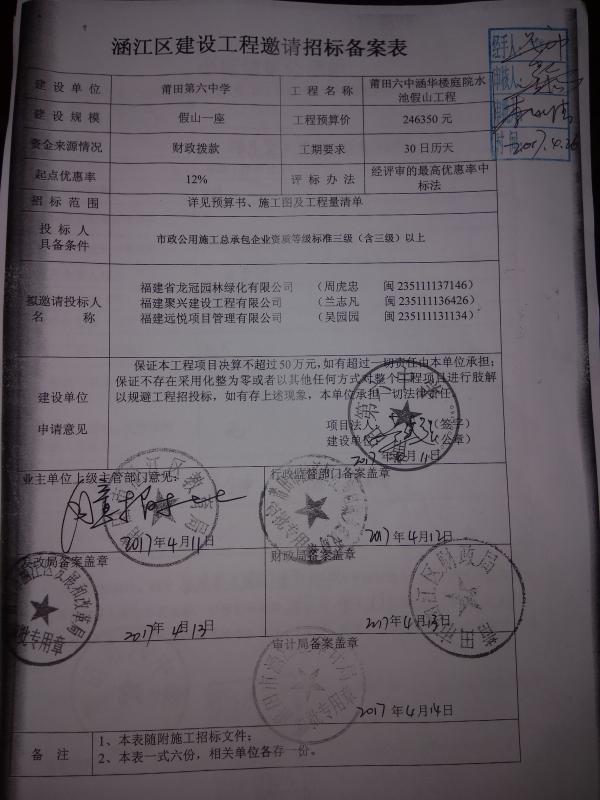 涵江区建设工程邀请招标备案表
经手人:
审核人:
时间 2017.4.26
建设单位 莆田第六中学 工程名称 莆田六中涵华楼庭院水池假山工程
建设规模 假山一座 工程预算价 246350 元
资金来源情况 财政拨款 工期要求 30 日历天
起点优惠率 12% 评标办法 经评审的最高优惠率中标法
招标范围 详见预算书、施工图及工程量清单
投标人
具备条件 市政公用施工总承包企业资质等级标准三级（含三级）以上
拟邀请投标人
名称
福建省龙冠园林绿化有限公司 （周虎忠 闽 235111137146）
福建聚兴建设工程有限公司 （兰志凡 闽 235111136426）
福建远悦项目管理有限公司 （吴园园 闽 235111131134）
建设单位
申请意见
保证本工程项目决算不超过 50 万元，如有超过一切责任由本单位承担；
保证不存在采用化整为零或者以其他任何方式对整个工程项目进行肢解
以规避工程招投标，如有存上述现象，本单位承担一切法律责任
项目法人 （签字）
建设单位 （公章）
2017 年 月 11 日
业主单位上级主管部门意见：
2017 年 4 月 11 日
行政监督部门备案盖章
2017 年 4 月 12 日
发改局备案盖章
2017 年 4 月 13 日
财政局备案盖章
2017 年 4 月 13 日
审计局备案盖章
2017 年 4 月 14 日
备注
1、本表随附施工招标文件；
2、本表一式六份，相关单位各存一份。